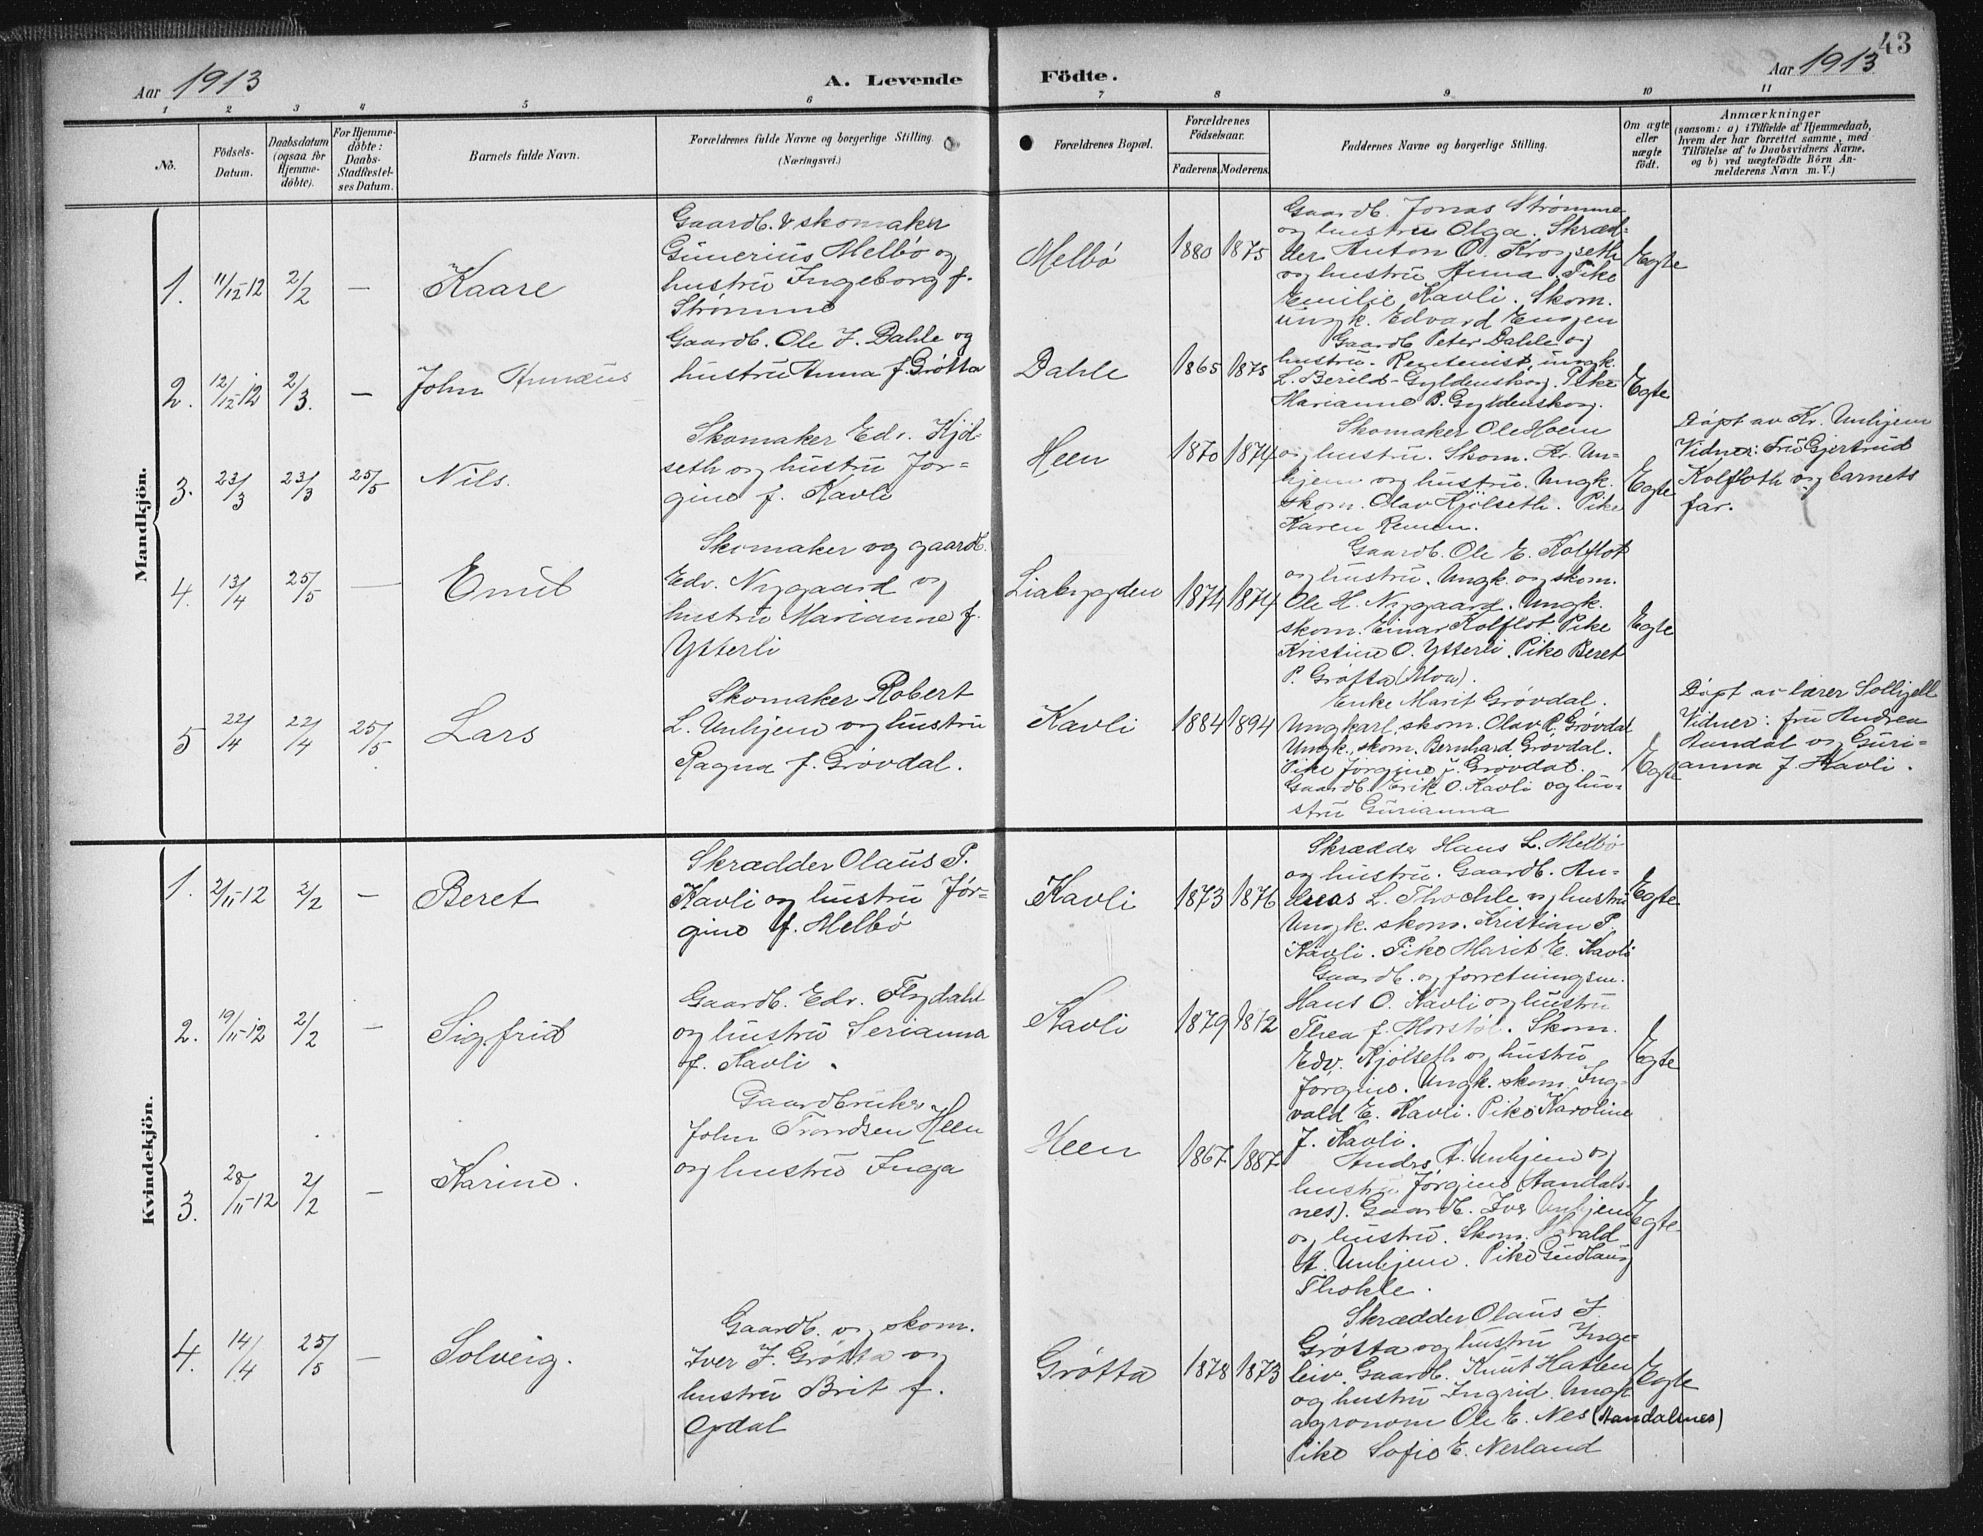 43
Aar 1913
A. Levende
Födte.
Aar 1913
1 2 3 4 5 6 7 8 9 10 11
No.
Födsels-
Datum.
Daabsdatum
(ogsaa for
Hjemme-
döbte).
For Hjemme-
döbte:
Daabs-
Stadfæstel-
ses Datum.
Barnets fulde Navn.
Forældrenes fulde Navne og borgerlige Stilling.
(Næringsvei.)
Forældrenes Bopæl.
Forældrenes
Födselsaar.
Faderens. Moderens.
Faddernes Navne og borgerlige Stilling.
Om ægte
eller
uægte
födt.
Anmærkninger
(saasom: a) i Tilfælde af Hjemmedaab,
hvem der har forrettet samme, med
Tilföielse af to Daabsvidners Navne,
og b) ved uægtefödte Börn An-
melderens Navn m. V.)
Mandkjön.
1. 11/12-12 2/2 — Kaare
Gaardb. & skomaker
Gunerius Melbø og
hustru Ingeborg f.
Strømme
Melbø 1880 1875
Gaardb. Jonas Strømme
og hustru Olga. Skræd-
der Anton O. Krogseth
og hustru Anna. Pike
Emilie Kavli. Skom.
ungk. Edvard Engen
Egte
2. 12/12-12 2/3. — John Annæus
Gaardb. Ole J. Dahle og
hustru Anna f. Grøtta
Dahle 1865 1875
Gaardb. Peter Dahle og
hustru. Rentenist, ungk.
L. Berild-Gyldenskog. Pike
Marianne B. Gyldenskog.
Egte
3. 23/3 23/3 25/5 Nils.
Skomaker Edv. Kjöl-
seth og hustru Jør-
gine f. Kavli
Heen 1870 1874
Skomaker Ole Hoem
og hustru. Skom. Kr. Un-
hjem og hustru. Ungk.
skom. Olav Kjölseth. Pike
Karen Remen.
Egte
Døpt av Kr. Unhjem
Vidner: Fru Gjertrud
Kolfloth og barnets
far.
4. 13/4 25/5 — Emil
Skomaker og gaardb.
Edv. Nygaard og
hustru Marianne f.
Ytterli
Liabygden 1874 1874
Gaardb. Ole E. Kolflot
og hustru. Ungk. og skom.
Ole H. Nygaard. Ungk.
skom. Einar Kolflot. Pike
Kristine O. Ytterli. Pike Beret
P. Grøtta (Moa).
Egte
5 22/4 22/4 25/5 Lars
Skomaker Robert
L. Unhjem og hustru
Ragna f. Grøvdal.
Kavli 1884 1894
Enke Marit Grøvdal.
Ungkarl, skom. Olav R. Grøvdal
Ungk., skom. Bernhard Grøvdal.
Pike Jørgine J. Grøvdal.
Gaardb. Erik O. Kavli og hu-
stru Gurianna
Egte
Døpt av lærer Sollijell
Vidner: fru Andrea
Aandal og Guri-
anna J. Kavli.
Kvindekjön.
1. 2/11-12 2/2 — Beret
Skrædder Olaus P.
Kavli og hustru Jør-
gine f. Melbø
Kavli 1873 1876
Skrædder Hans L. Melbø
og hustru. Gaardb. An-
dreas L. Thochle og hustru
Ungk. skom. Kristian P.
Kavli. Pike Marit E. Kavli
Egte
2. 19/11-12 2/2 — Sigfrid
Gaardb. Edv. Flydahl
og hustru Serianna
f. Kavli.
Kavli 1879 1872
Gaardb. og forretningsm.
Hans O. Kavli og hustru
Thea f. Morstøl. Skom.
Edv. Kjölseth og hustru
Jørgine. Ungk. skom. Ing-
vald E. Kavli. Pike Karoline
J. Kavli.
Egte
3. 28/11-12 2/2 — Karine.
Gaardbruker
John Trondsen Heen
og hustru Inga
Heen 1867 1887
Andrs. A. Unhjem og
hustru Jørgine (Aandals-
nes). Gaardb. Iver Unhjem
og hustru. Skom. Harald
A. Unhjem. Pike Gudlaug
Thokle.
Egte
4. 14/4 25/5 — Solveig.
Gaardb. og skom.
Iver J. Grøtta og
hustru Brit f.
Opdal
Grøtta 1878 1873
Skrædder Olaus J.
Grøtta og hustru Inge-
leiv. Gaardb. Knut Hatlen
og hustru Ingrid. Ungk.
agronom Ole E. Nes (Aandalsnes)
Pike Sofie E. Nerland
Egte